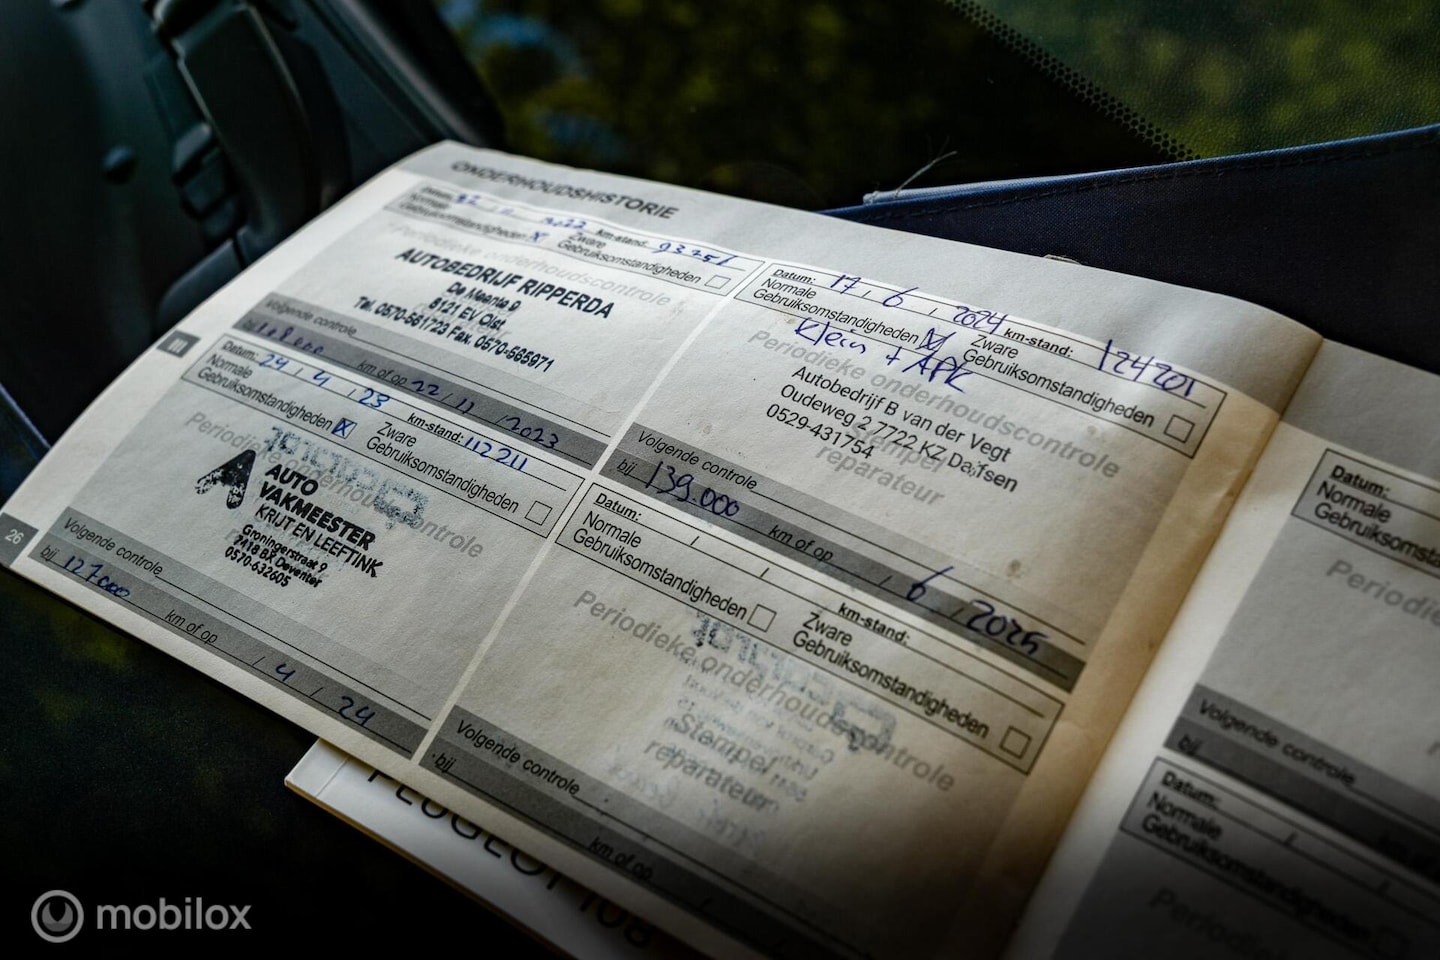 ONDERHOUDSHISTORIE
Datum: 22 2022 km-stand: 93251
Normale Gebruiksomstandigheden X Zware Gebruiksomstandigheden
Periodieke onderhoudscontrole
AUTOBEDRIJF RIPPERDA
De Meente 9
8121 EV Olst
Tel. 0570-561723 Fax. 0570-565971
Volgende controle
bij 108000 km of op 22 / 11 / 2023
Datum: 24 / 4 / 23 km-stand: 112211
Normale Gebruiksomstandigheden X Zware Gebruiksomstandigheden
Periodieke onderhoudscontrole
AUTO
VAKMEESTER
KRIJT EN LEEFTINK
Groningerstraat 9
7418 BX Deventer
0570-632605
Volgende controle
bij 127000 km of op / 4 / 24
26
Datum: 17 / 6 / 2024 km-stand: 124201
Normale Gebruiksomstandigheden X Zware Gebruiksomstandigheden
Klein + APK
Periodieke onderhoudscontrole
Stempel
reparateur
Autobedrijf B van der Vegt
Oudeweg 2 7722 KZ Dalfsen
0529-431754
Volgende controle
bij 139.000 km of op / 6 / 2025
Datum: / / km-stand:
Normale Gebruiksomstandigheden Zware Gebruiksomstandigheden
Periodieke onderhoudscontrole
Stempel
reparateur
Volgende controle
bij km of op
Datum:
Normale
Periodieke
Volgende controle
bij
Datum:
Normale
Periodieke
PEUGEOT 108
mobilox